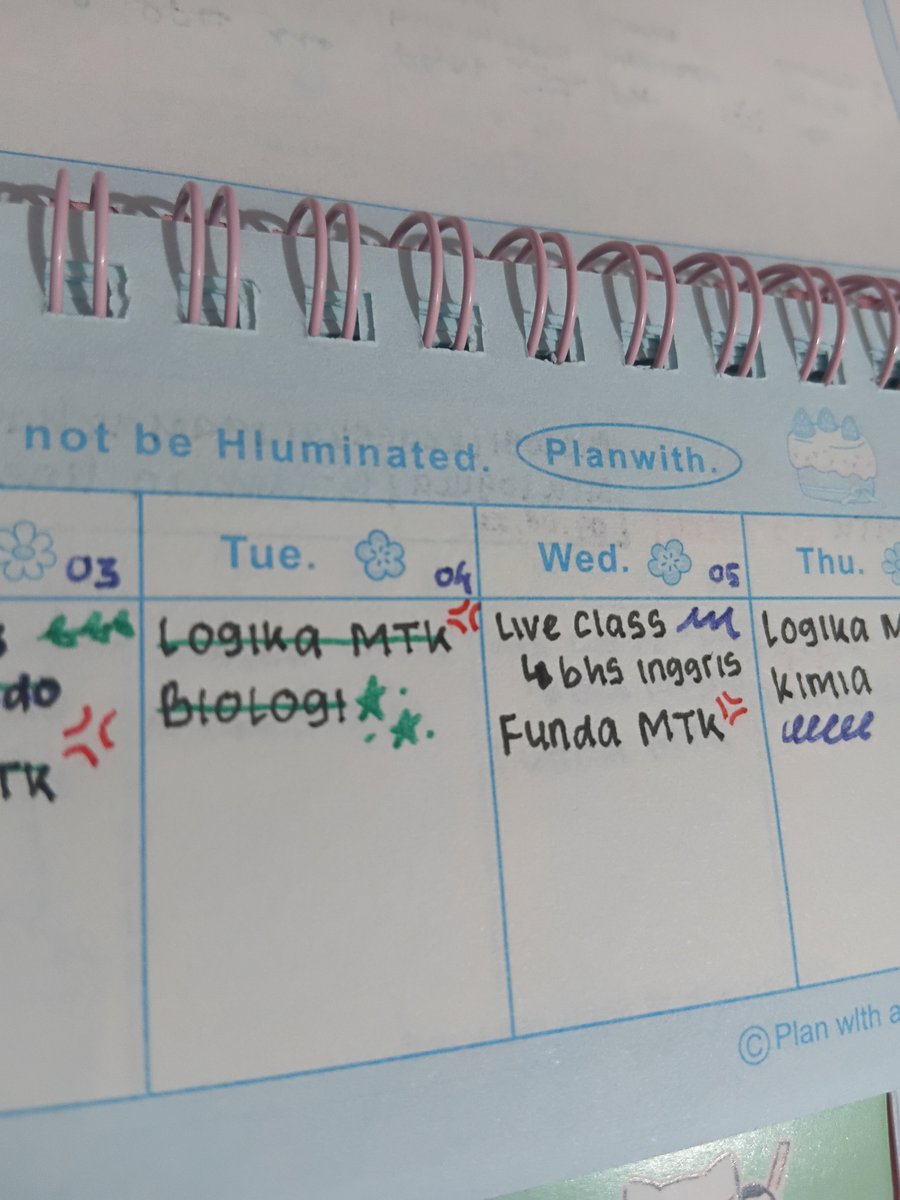 not be Hluminated. Planwith.
03
do
TK
Tue. 04
Logika MTK
Biologi
Wed. 05
Live class
↳ bhs inggris
Funda MTK
Thu.
Logika M
kimia
© Plan with a